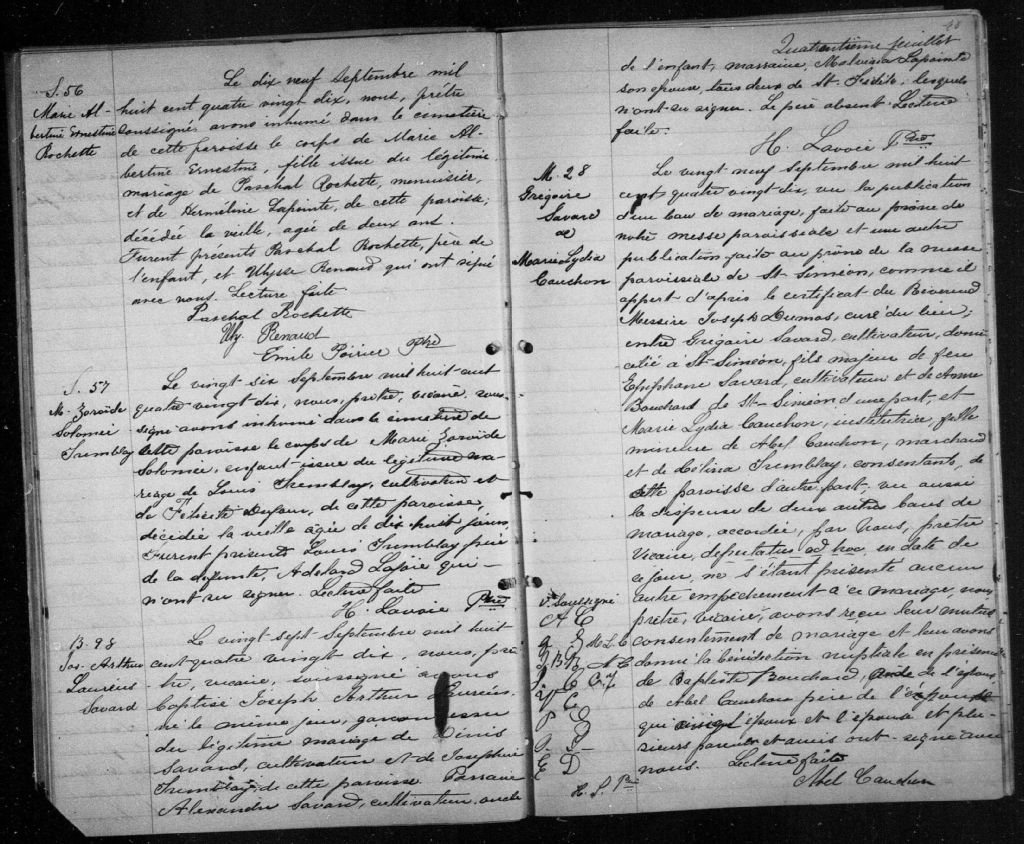 S. 56
Marie Al-
bertine Ernestine
Rochette
Le dix neuf Septembre mil
huit cent quatre vingt dix, nous, prêtre
soussigné, avons inhumé dans le cimetière
de cette paroisse le corps de Marie Al-
bertine Ernestine, fille issue du légitime
mariage de Paschal Rochette, menuisier,
et de Herméline Lapointe, de cette paroisse,
décédée la veille, agée de deux ans.
Furent présents Paschal Rochette, père de
l'enfant, et Ulysse Renaud qui ont signé
avec nous. Lecture faite
Paschal Rochette
Uly. Renaud
Emile Poirier Ptre
S. 57
M. Zoroïde
Solomée
Tremblay
Le vingt-six Septembre mil huit cent
quatre vingt dix, nous, prêtre, vicaire, sous-
signé avons inhumé dans le cimetière de
cette paroisse le corps de Marie Zoroïde
Solomée, enfant issue du légitime ma-
riage de Louis Tremblay, cultivateur et
de Félicité Dufour, de cette paroisse,
décédée la vieille agée de dix huit jours.
Furent présents Louis Tremblay père
de la défunte, Adelard Lajoie qui
n'ont su signer. Lecture faite
H. Lavoie Ptre
B. 98
Jos. Arthur
Lauréns
Savard
Le vingt sept Septembre mil huit
cent quatre vingt dix, nous, prê-
tre, vicaire, soussigné avons
baptisé Joseph Arthur
né le même jour, garçon issu
du légitime mariage de Denis
Savard, cultivateur et de Josephine
Tremblay de cette paroisse. Parrain
Alexandre Savard, cultivateur, oncle
40
Quarantième feuillet
de l'enfant, marraine, Malvina Lapointe
son épouse, tous deux de St. Fidèle; lesquels
n'ont su signer. Le père absent. Lecture
faite.
H. Lavoie Ptre
M. 28
Grégoire
Savard
et
Marie Lydia
Cauchon
Le vingt neuf Septembre mil huit
cent quatre vingt dix, vu la publication
d'un ban de mariage, faite au prône de
notre messe paroissiale et une autre
publication faite au prône de la messe
paroissiale de St-Siméon, comme il
appert d'après le certificat du Révérend
Messire Joseph Dumas, curé du lieu;
entre Grégoire Savard, cultivateur, domi-
cilié à St-Siméon, fils majeur de feu
Epiphane Savard, cultivateur et de Anne
Bouchard de St-Siméon d'une part, et
Marie Lydia Cauchon, institutrice, fille
mineure de Abel Cauchon, marchand
et de Célina Tremblay, consentants, de
cette paroisse d'autre part; vu aussi
la dispense de deux autres bans de
mariage, accordée, par nous, prêtre
vicaire, ad hoc, en date de
ce jour, ne s'étant présenté aucun
autre empêchement à ce mariage, nous
prêtre, vicaire, avons reçu leur mutuel
consentement de mariage et leur avons
donné la bénédiction nuptiale en présence
de Baptiste Bouchard, de l'époux
de Abel Cauchon père de l'épouse
qui ainsi que l'époux et l'épouse et plu-
sieurs parents et amis ont signé avec
nous. Lecture faite
Abel Cauchon
Vre Soussigné
A C
M L C
A C
C. T.
E D
H. L Ptre